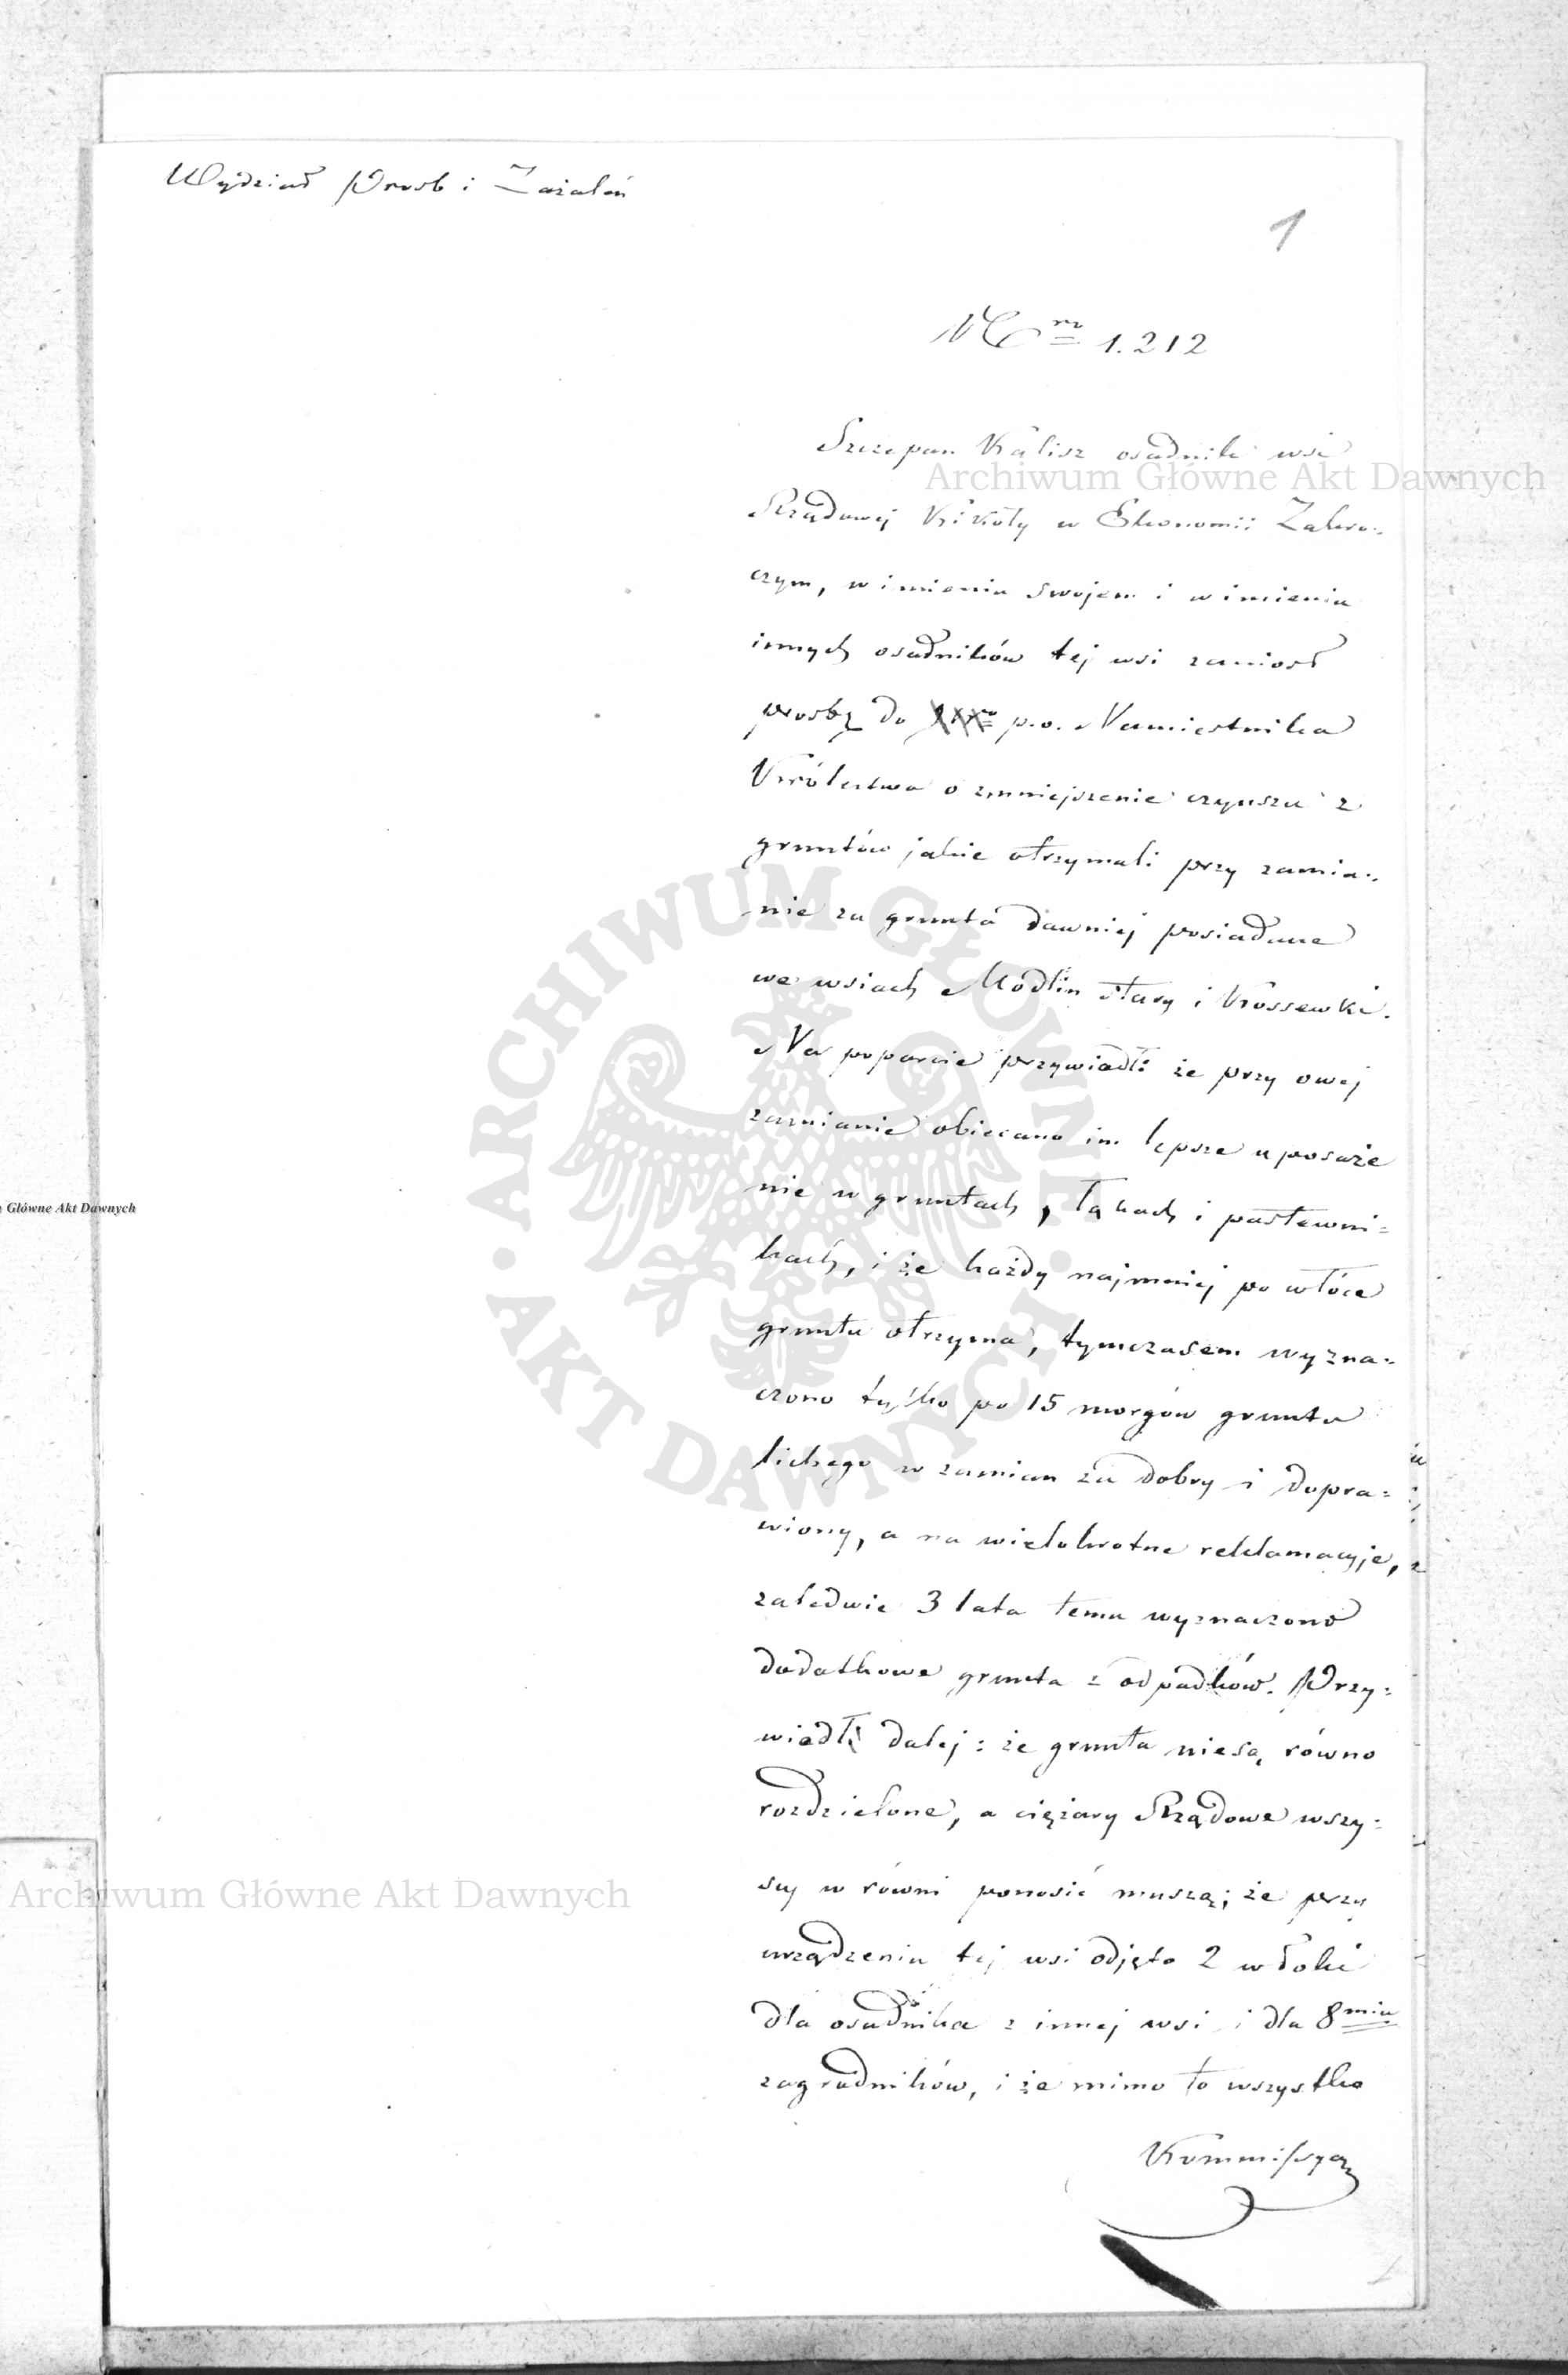 Wydział Prosb i Zażaleń
1
Nr 1.212
Szczepan Kalisz osadnik wsi
Rządowej Kikoły w Ekonomii Zakro-
czym, w imieniu swojem i w imieniu
innych osadników tej wsi zaniosł
prosbę do p.o. Namiestnika
Królestwa o zmniejszenie czynszu z
gruntów jakie otrzymali przy zamia-
nie za grunta dawniej posiadane
we wsiach Modlin stary i Kossewki.
Na poparcie przywiedli że przy owej
zamianie obiecano im lepsze uposaże
nie w gruntach, łąkach i pastewni=
kach, i że każdy najmniej po włóce
gruntu otrzyma, tymczasem wyzna=
czono tylko po 15 morgów gruntu
lichego w zamian za dobry i dopra=
wiony, a na wielokrotne reklamacyje,
zaledwie 3 lata temu wyznaczono
dodatkowe grunta z odpadków. Przy=
wiedli dalej: że grunta niesą równo
rozdzielone, a ciężary Rządowe wszy=
scy w równi ponosić muszą; że przy
urządzeniu tej wsi odjęto 2 włoki
dla osadnika z innej wsi i dla 8miu
zagrodników, i że mimo to wszystko
Kommissya
Archiwum Główne Akt Dawnych
Główne Akt Dawnych
Archiwum Główne Akt Dawnych
ARCHIWUM GŁÓWNE AKT DAWNYCH